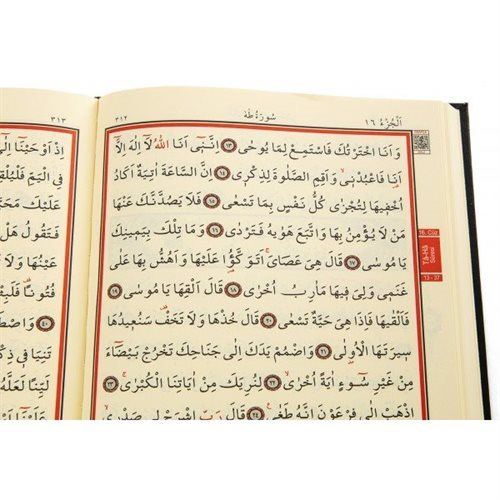 اَلْجُزْءُ ١٦
سُورَةُ طٰهٰ
٣١٢
وَاَنَا اخْتَرْتُكَ فَاسْتَمِعْ لِمَا يُوحٰى ﴿١٣﴾ اِنَّنٖٓى اَنَا اللّٰهُ لَٓا اِلٰهَ اِلَّٓا
اَنَا فَاعْبُدْنٖى وَاَقِمِ الصَّلٰوةَ لِذِكْرٖى ﴿١٤﴾ اِنَّ السَّاعَةَ اٰتِيَةٌ اَكَادُ
اُخْفٖيهَا لِتُجْزٰى كُلُّ نَفْسٍ بِمَا تَسْعٰى ﴿١٥﴾ فَلَا يَصُدَّنَّكَ عَنْهَا
مَنْ لَا يُؤْمِنُ بِهَا وَاتَّبَعَ هَوٰيهُ فَتَرْدٰى ﴿١٦﴾ وَمَا تِلْكَ بِيَمٖينِكَ
يَا مُوسٰى ﴿١٧﴾ قَالَ هِىَ عَصَاىَ اَتَوَكَّؤُ۬ا عَلَيْهَا وَاَهُشُّ بِهَا عَلٰى
غَنَمٖى وَلِىَ فٖيهَا مَاٰرِبُ اُخْرٰى ﴿١٨﴾ قَالَ اَلْقِهَا يَا مُوسٰى ﴿١٩﴾
فَاَلْقٰيهَا فَاِذَا هِىَ حَيَّةٌ تَسْعٰى ﴿٢٠﴾ قَالَ خُذْهَا وَلَا تَخَفْ سَنُعٖيدُهَا
سٖيرَتَهَا الْاُو۫لٰى ﴿٢١﴾ وَاضْمُمْ يَدَكَ اِلٰى جَنَاحِكَ تَخْرُجْ بَيْضَٓاءَ
مِنْ غَيْرِ سُٓوءٍ اٰيَةً اُخْرٰى ﴿٢٢﴾ لِنُرِيَكَ مِنْ اٰيَاتِنَا الْكُبْرٰى ﴿٢٣﴾
اِذْهَبْ اِلٰى فِرْعَوْنَ اِنَّهُ طَغٰى ﴿٢٤﴾ قَالَ رَبِّ اشْرَحْ لٖى صَدْرٖى
16. Cüz
Tâ-Hâ
Sûresi
13 - 37
٣١٣
اِذْ اَوْحَيْنَٓا اِلٰٓى
فِى الْيَمِّ فَلْيُلْقِهِ
عَلَيْكَ مَحَبَّةً
فَتَقُولُ هَلْ
عَيْنُهَا وَلَا
فُتُونًا فَلَبِثْتَ
وَاصْطَنَعْتُكَ
تَنِيَا فٖى ذِكْرٖى
لَيِّنًا لَعَلَّهُ
عَلَيْنَٓا اَوْ